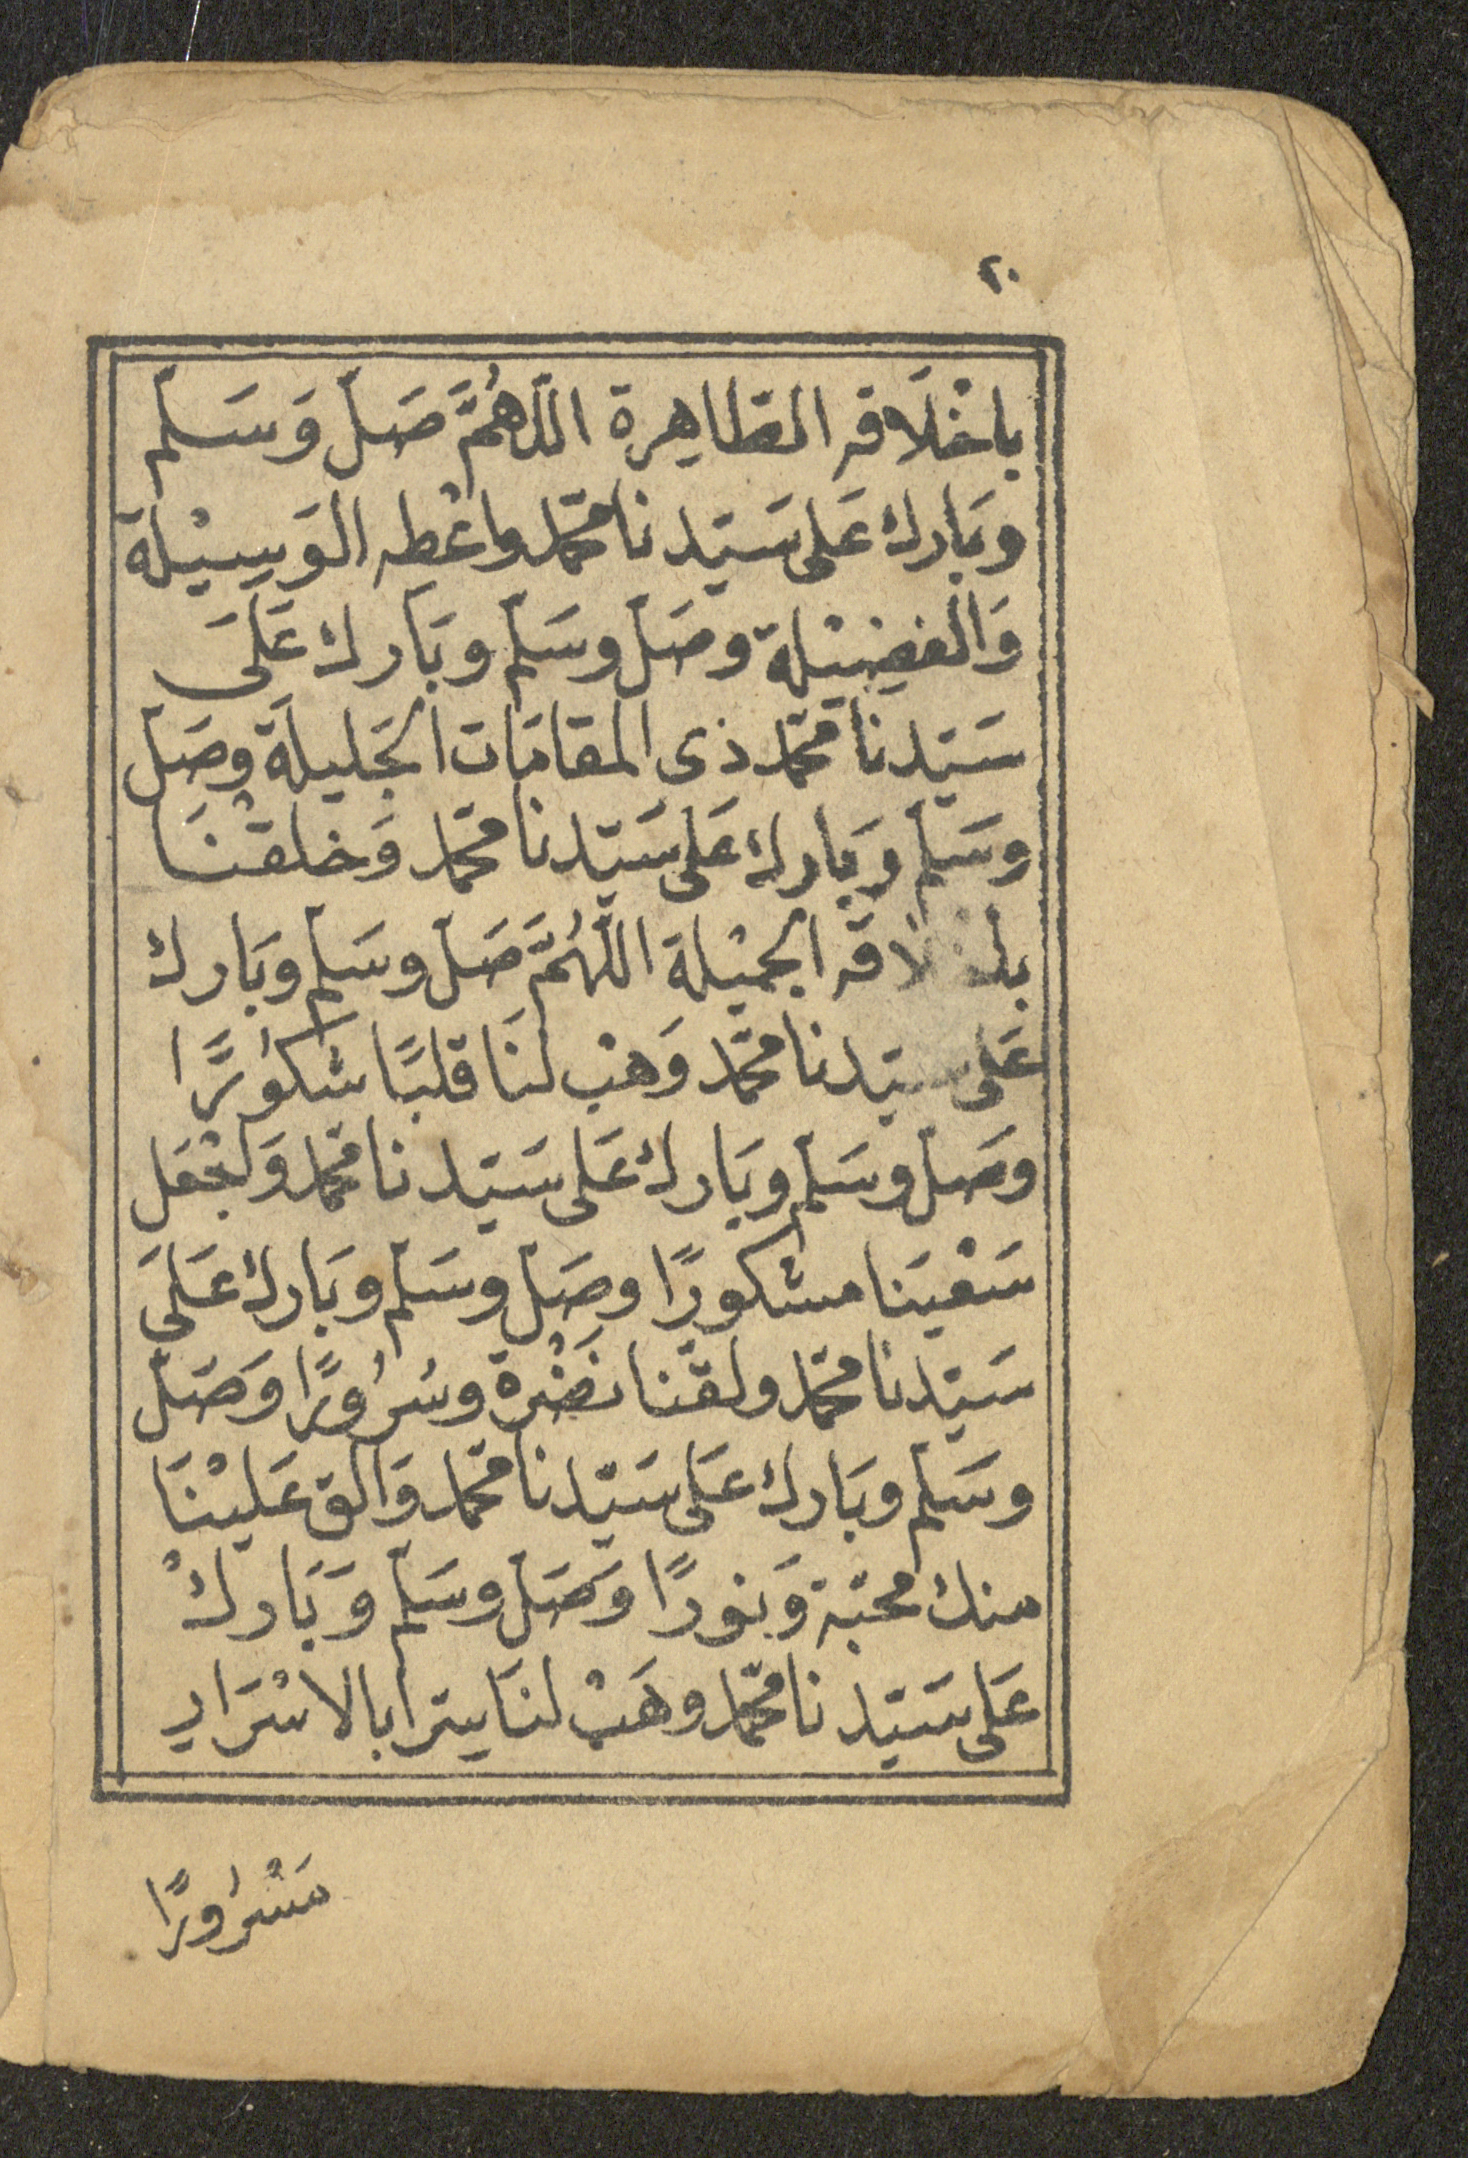 ٢٠
باخْلَاقه الطّاهِرة اللّهُمَّ صَلّ وَسَلّم
وبَارك عَلى سَيّدنا محمّد واعْطِه الوَسِيْلة
وَالفَضِيْلة وصَلّ وسَلّم وبَارك عَلَى
سَيّدنا محمّد ذى المقامَات الجَليلَة وصَلّ
وسَلّم وبَارك عَلى سَيّدنا محمّد وَخلقْنَا
باخلاقه الجميْلة اللّهُمَّ صَلّ وسَلّم وبَارك
عَلى سيّدنا محمّد وَهبْ لنَا قلبًا شكُورًا
وصَلّ وسَلّم وبَارك عَلى سَيّدنا محمّد وَاجْعَل
سَعْيَنا مشكورًا وصَلّ وسَلّم وبَارك عَلَى
سَيّدنا محمّد ولقّنا نَضْرة وسُرُورًا وَصَلّ
وسَلّم وبَارك عَلى سَيّدنا محمّد وَالق عَليْنَا
منك محبّة وَنورًا وَصَلّ وسَلّم وَبَاركْ
عَلى سَيّدنا محمّد وهَبْ لنَا سِرّا بالاسْرَارِ
مَسْرُورًا